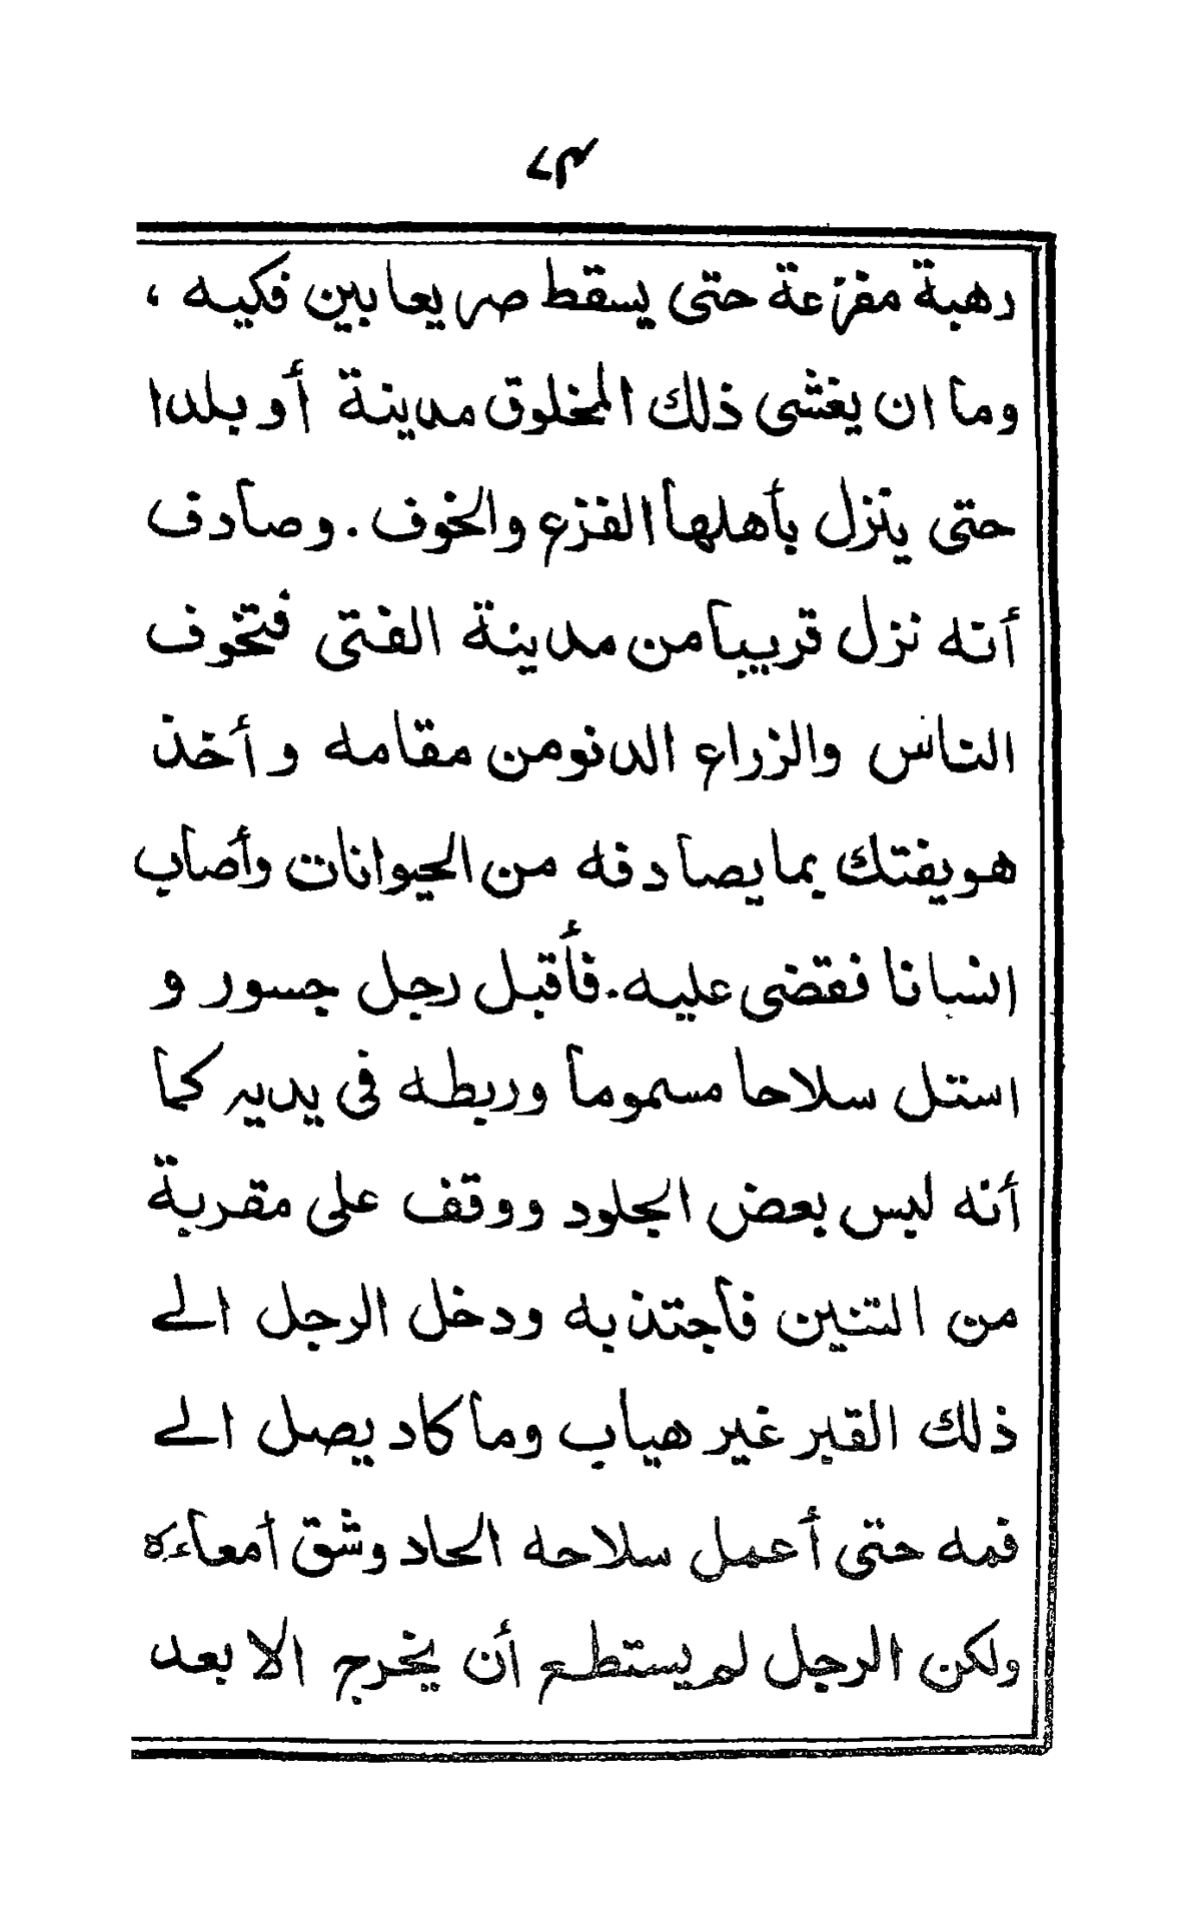 رهبة مفزعة حتى يسقط صريعا بين فكيه ،
وما ان يغشى ذلك المخلوق مدينة أو بلدا
حتى ينزل بأهلها الفزع والخوف . وصادف
أنه نزل قريبا من مدينة الفتى فتخوف
الناس والزراع الدنو من مقامه وأخذ
هو يفتك بما يصادفه من الحيوانات وأصاب
انسانا فقضى عليه . فأقبل رجل جسور و
استل سلاحا مسموما وربطه فى يديه كما
أنه لبس بعض الجلود ووقف على مقربة
من التنين فاجتذبه ودخل الرجل الى
ذلك القبر غير هياب وما كاد يصل الى
فمه حتى أعمل سلاحه الحاد وشق أمعاءه
ولكن الرجل لم يستطع أن يخرج الا بعد